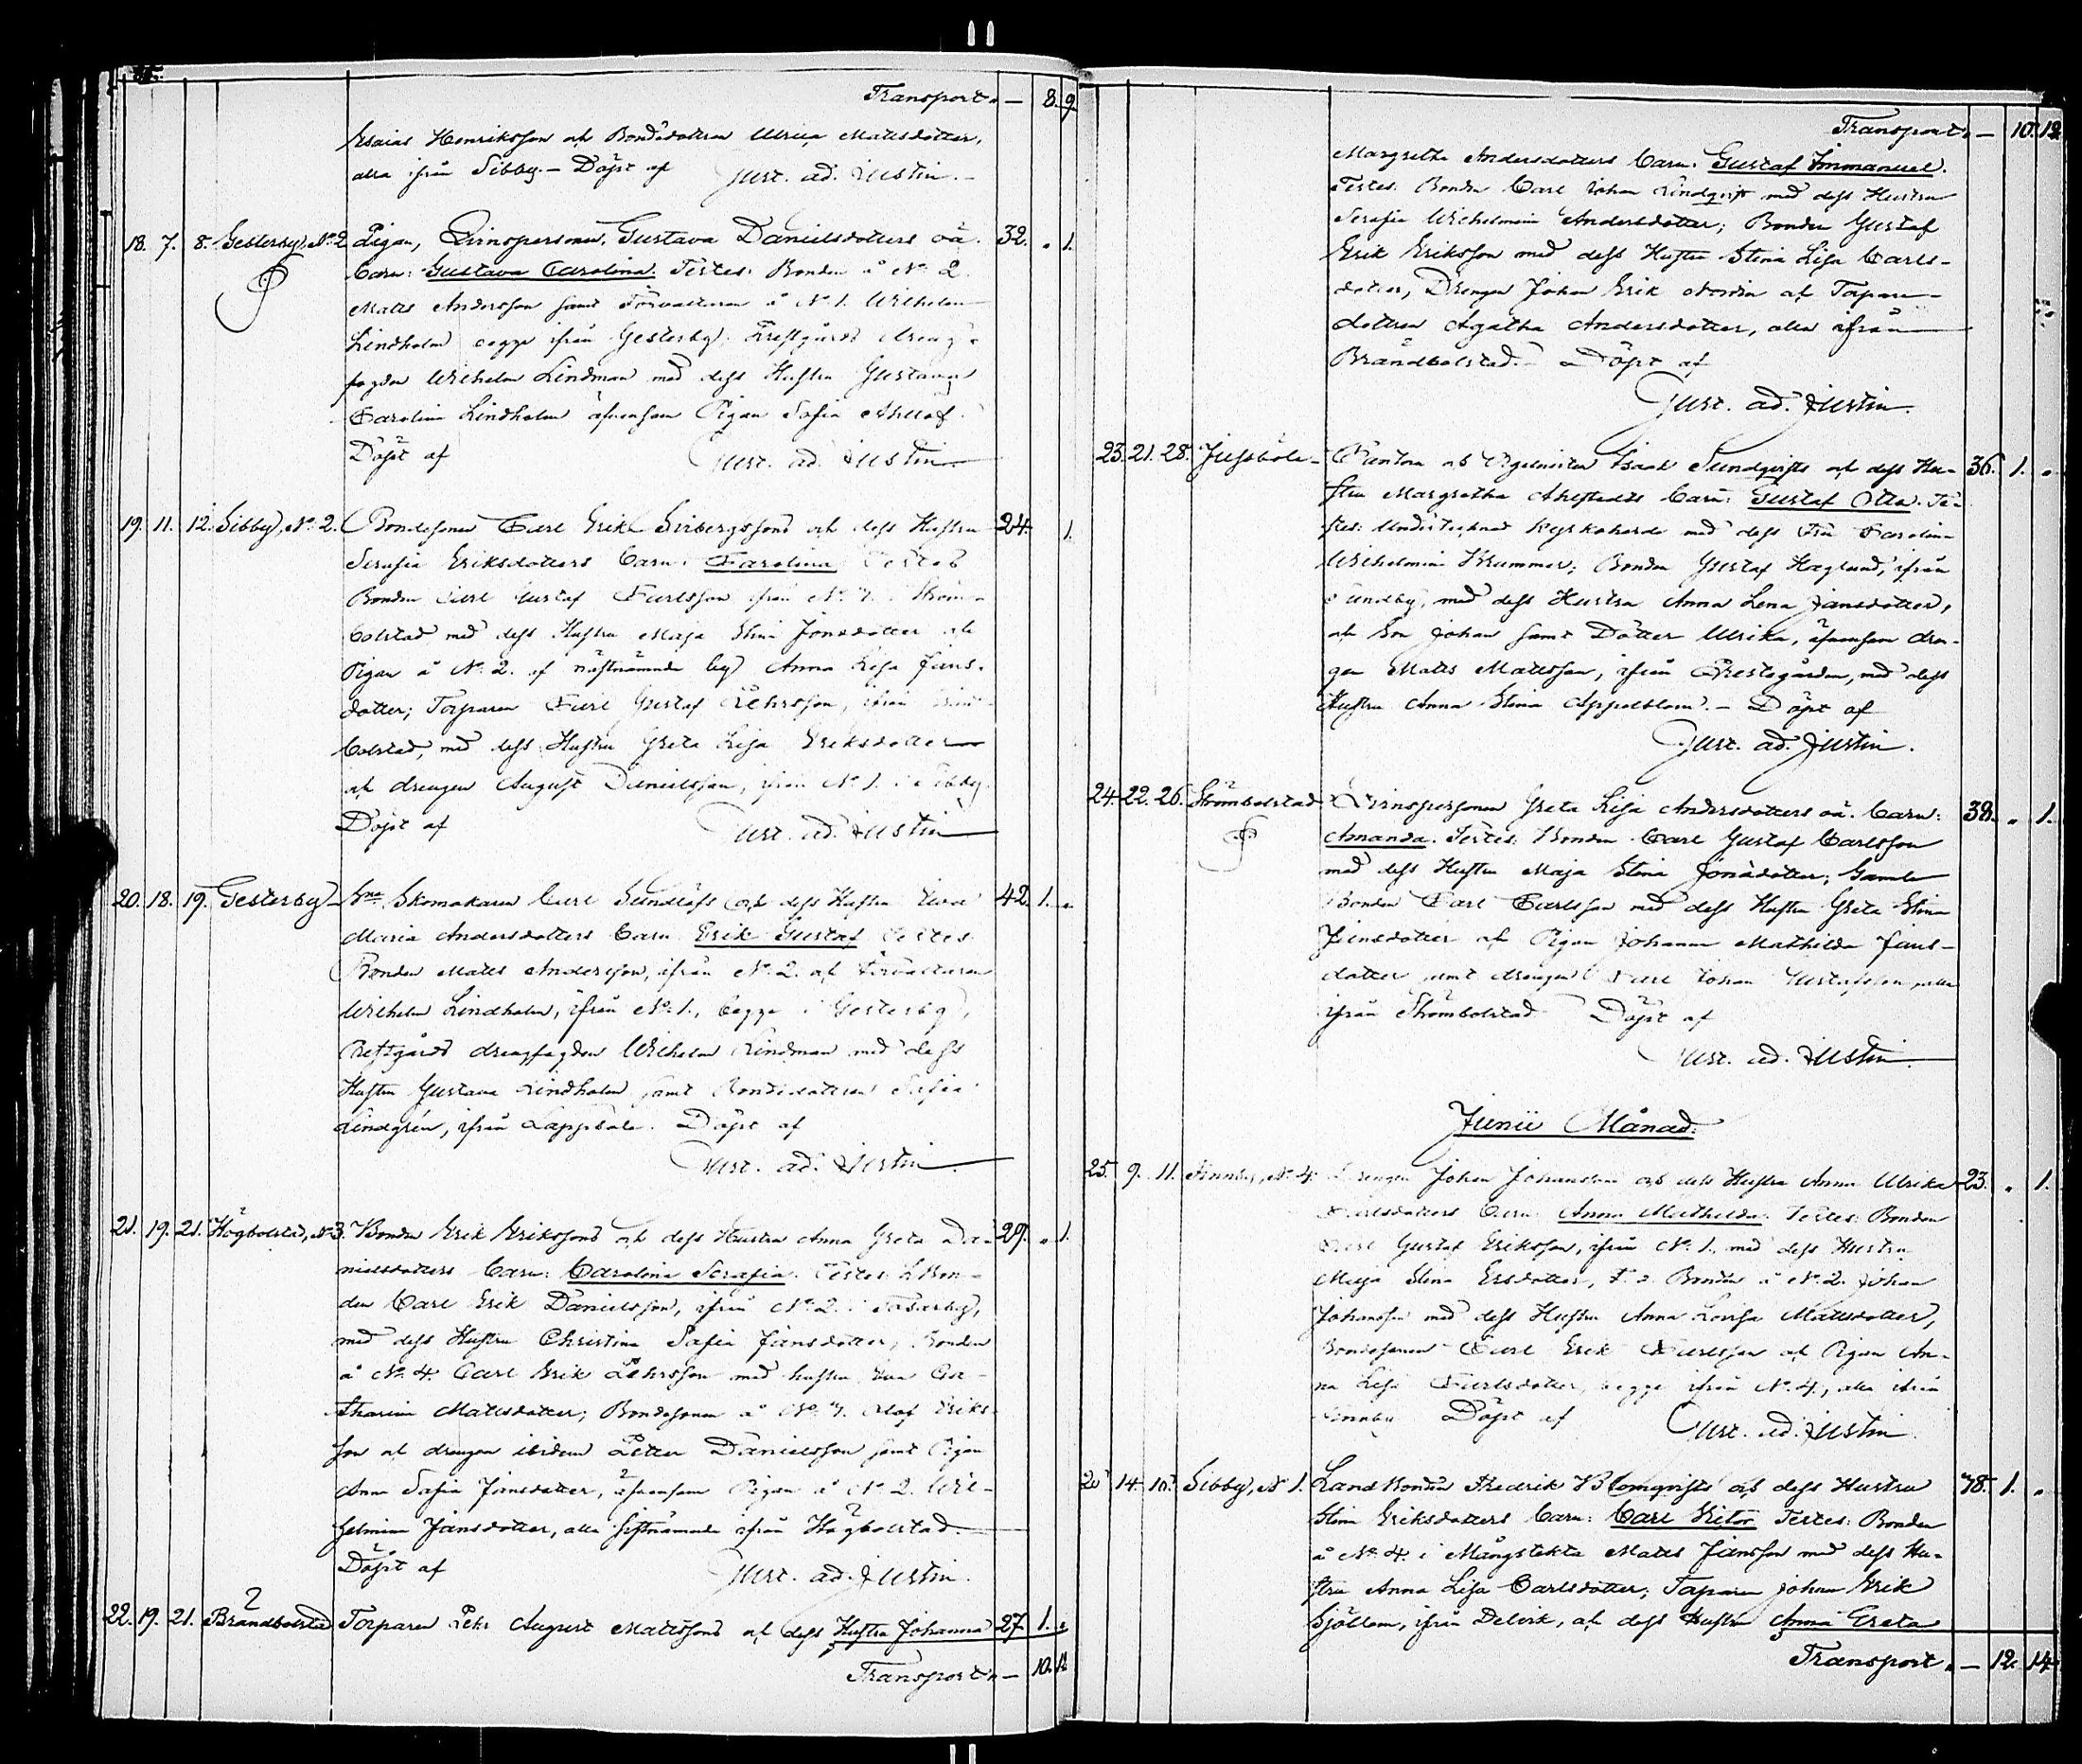 Transport. — 8. 9.
Esaias Henriksson och Bondedottren Ulrica Mattsdotter,
alla ifrån Sibby. — Döpt af Gust. ad. Justin. —
18. 7. 8. Gesterby, No 2 Pigan, Qvinspersonen, Gustava Danielsdotters oä. 32. " 1.
Barn: Gustava Carolina. Testes: Bonden å No 2
Matts Andersson samt Förvaltaren å No 1. Wilhelm
Lindholm begge ifrån Gesterby. Prestgårds dreng-
fogden Wilhelm Lindman med dess Hustru Gustava
Carolina Lindholm äfvensom Pigan Sofia
Döpt af Gust. ad. Justin
19. 11. 12. Sibby, No 2. Bondesonen Carl Erik Sirbergssons och dess Hustru 24. 1.
Serafia Eriksdotters Barn: Carolina Testes
Bonden Carl Gustaf Carlsson ifrån No 7. i Ström-
bolstad med dess Hustru Maja Stina Jonsdotter och
Pigan å No 2. af nästnämnde by Anna Lisa Jans-
dotter; Torparen Carl Gustaf Pehrsson, ifrån
bolstad, med dess Hustru Greta Lisa Eriksdotter
och drengen August Danielsson, ifrån No 1. i Sibby.
Döpt af Gust. ad. Justin
20. 18. 19. Gesterby — Skomakaren Carl Sundlöfs och dess Hustru Eva 42. 1. "
Maria Andersdotters Barn Erik Gustaf Testes
Bonden Matts Andersson, ifrån No 2. och Förvaltaren
Wilhelm Lindholm, ifrån No 1., begge i Gesterby,
Prestgårds drengfogden Wilhelm Lindman med dess
Hustru Gustava Lindholm samt Bondedottren Sofia
Lindgrén, ifrån Lappdala. Döpt af
Gust. ad. Justin
21. 19. 21. Högbolstad, No 3. Bonden Erik Erikssons och dess Hustru Anna Greta Da- 29. " 1.
nielsdotters Barn: Carolina Serafia. Testes: Bon-
den Carl Erik Danielsson, ifrån No 2. i
med dess Hustru Christina Sofia Jansdotter, Bonden
å No 4. Carl Erik Pehrsson med hustru Eva Ca-
tharina Mattsdotter; Bondesonen å No 7. Olof Eriks-
son och drengen ibidem Petter Danielsson samt Pigan
Anna Sofia Jansdotter, äfvensom Pigan å No 2. Wil-
helmina Jansdotter, alla sistnämnde ifrån Högbolstad.
Döpt af Gust. ad. Justin.
22. 19. 21. Brändbolstad Torparen Pehr August Mattssons och dess Hustru Johanna 27. 1. "
Transport. — 10.
Transport. — 10. 12.
Margretha Andersdotters Barn. Gustaf Immanuel.
Testes: Bonden Carl Johan Lindqvist med dess Hustru
Serafia Wilhelmina Andersdotter; Bonden Gustaf
Erik Eriksson med dess Hustru Stina Lisa Carls-
dotter, Drengen Johan Erik Nordin och Torpare-
dottren Agatha Andersdotter, alla ifrån
Brändbolstad. — Döpt af
Gust. ad. Justin.
23. 21. 28. Jussböle — Cantorn och Orgelnisten Isaak Sundqvists och dess Hu- 36. 1. "
stru Margretha Ahlstedts Barn: Gustaf Otto. Te-
stes: Undertecknad Kyrkoherde med dess Fru Carolina
Wilhelmina Krummer; Bonden Gustaf Haglund, ifrån
Sundby, med dess Hustru Anna Lena Jansdotter,
och Son Johan samt Dotter Ulrika, äfvensom dren-
gen Matts Mattsson, ifrån Prestegården, med dess
Hustru Anna Stina Appelblom. — Döpt af
Gust. ad. Justin.
24. 22. 26. Strömbolstad Qvinspersonen Greta Lisa Andersdotters oä. Barn: 38. " 1.
Amanda. Testes: Bonden Carl Gustaf Carlsson
med dess Hustru Maja Stina Jonsdotter; Gamle
Bonden Carl Carlsson med dess Hustru Greta Stina
Jansdotter och Pigan Johanna Mathilda Jans-
dotter samt drengen Carl Johan Gustafsson, alla
ifrån Strömbolstad Döpt af
Gust. ad. Justin
Junii Månad.
25. 9. 11. Finnby, No 4. Drengen Johan Johansson och dess Hustru Anna Ulrika 23. " 1.
Carlsdotters Barn: Anna Mathilda. Testes: Bonden
Carl Gustaf Eriksson, ifrån No 1., med dess Hustru
Maja Stina Ersdotter, Bonden å No 2. Johan
Johansson med dess Hustru Anna Lovisa Mattsdotter,
Bondesonen Carl Erik Carlsson och Pigan An-
na Lisa Carlsdotter, begge ifrån No 4., alla ifrån
Finnby Döpt af Gust. ad. Justin.
14. Sibby, No 1. Landbonden Fredrik Blomqvists och dess Hustru 38. 1. "
Stina Eriksdotters Barn: Carl Victor Testes: Bonden
å No 4. i Mångstekta Matts Jansson med dess Hu-
stru Anna Lisa Carlsdotter; Torparen Johan Erik
Sjöblom, ifrån Delvik, och dess Hustru Anna Greta
Transport. — 12. 14.